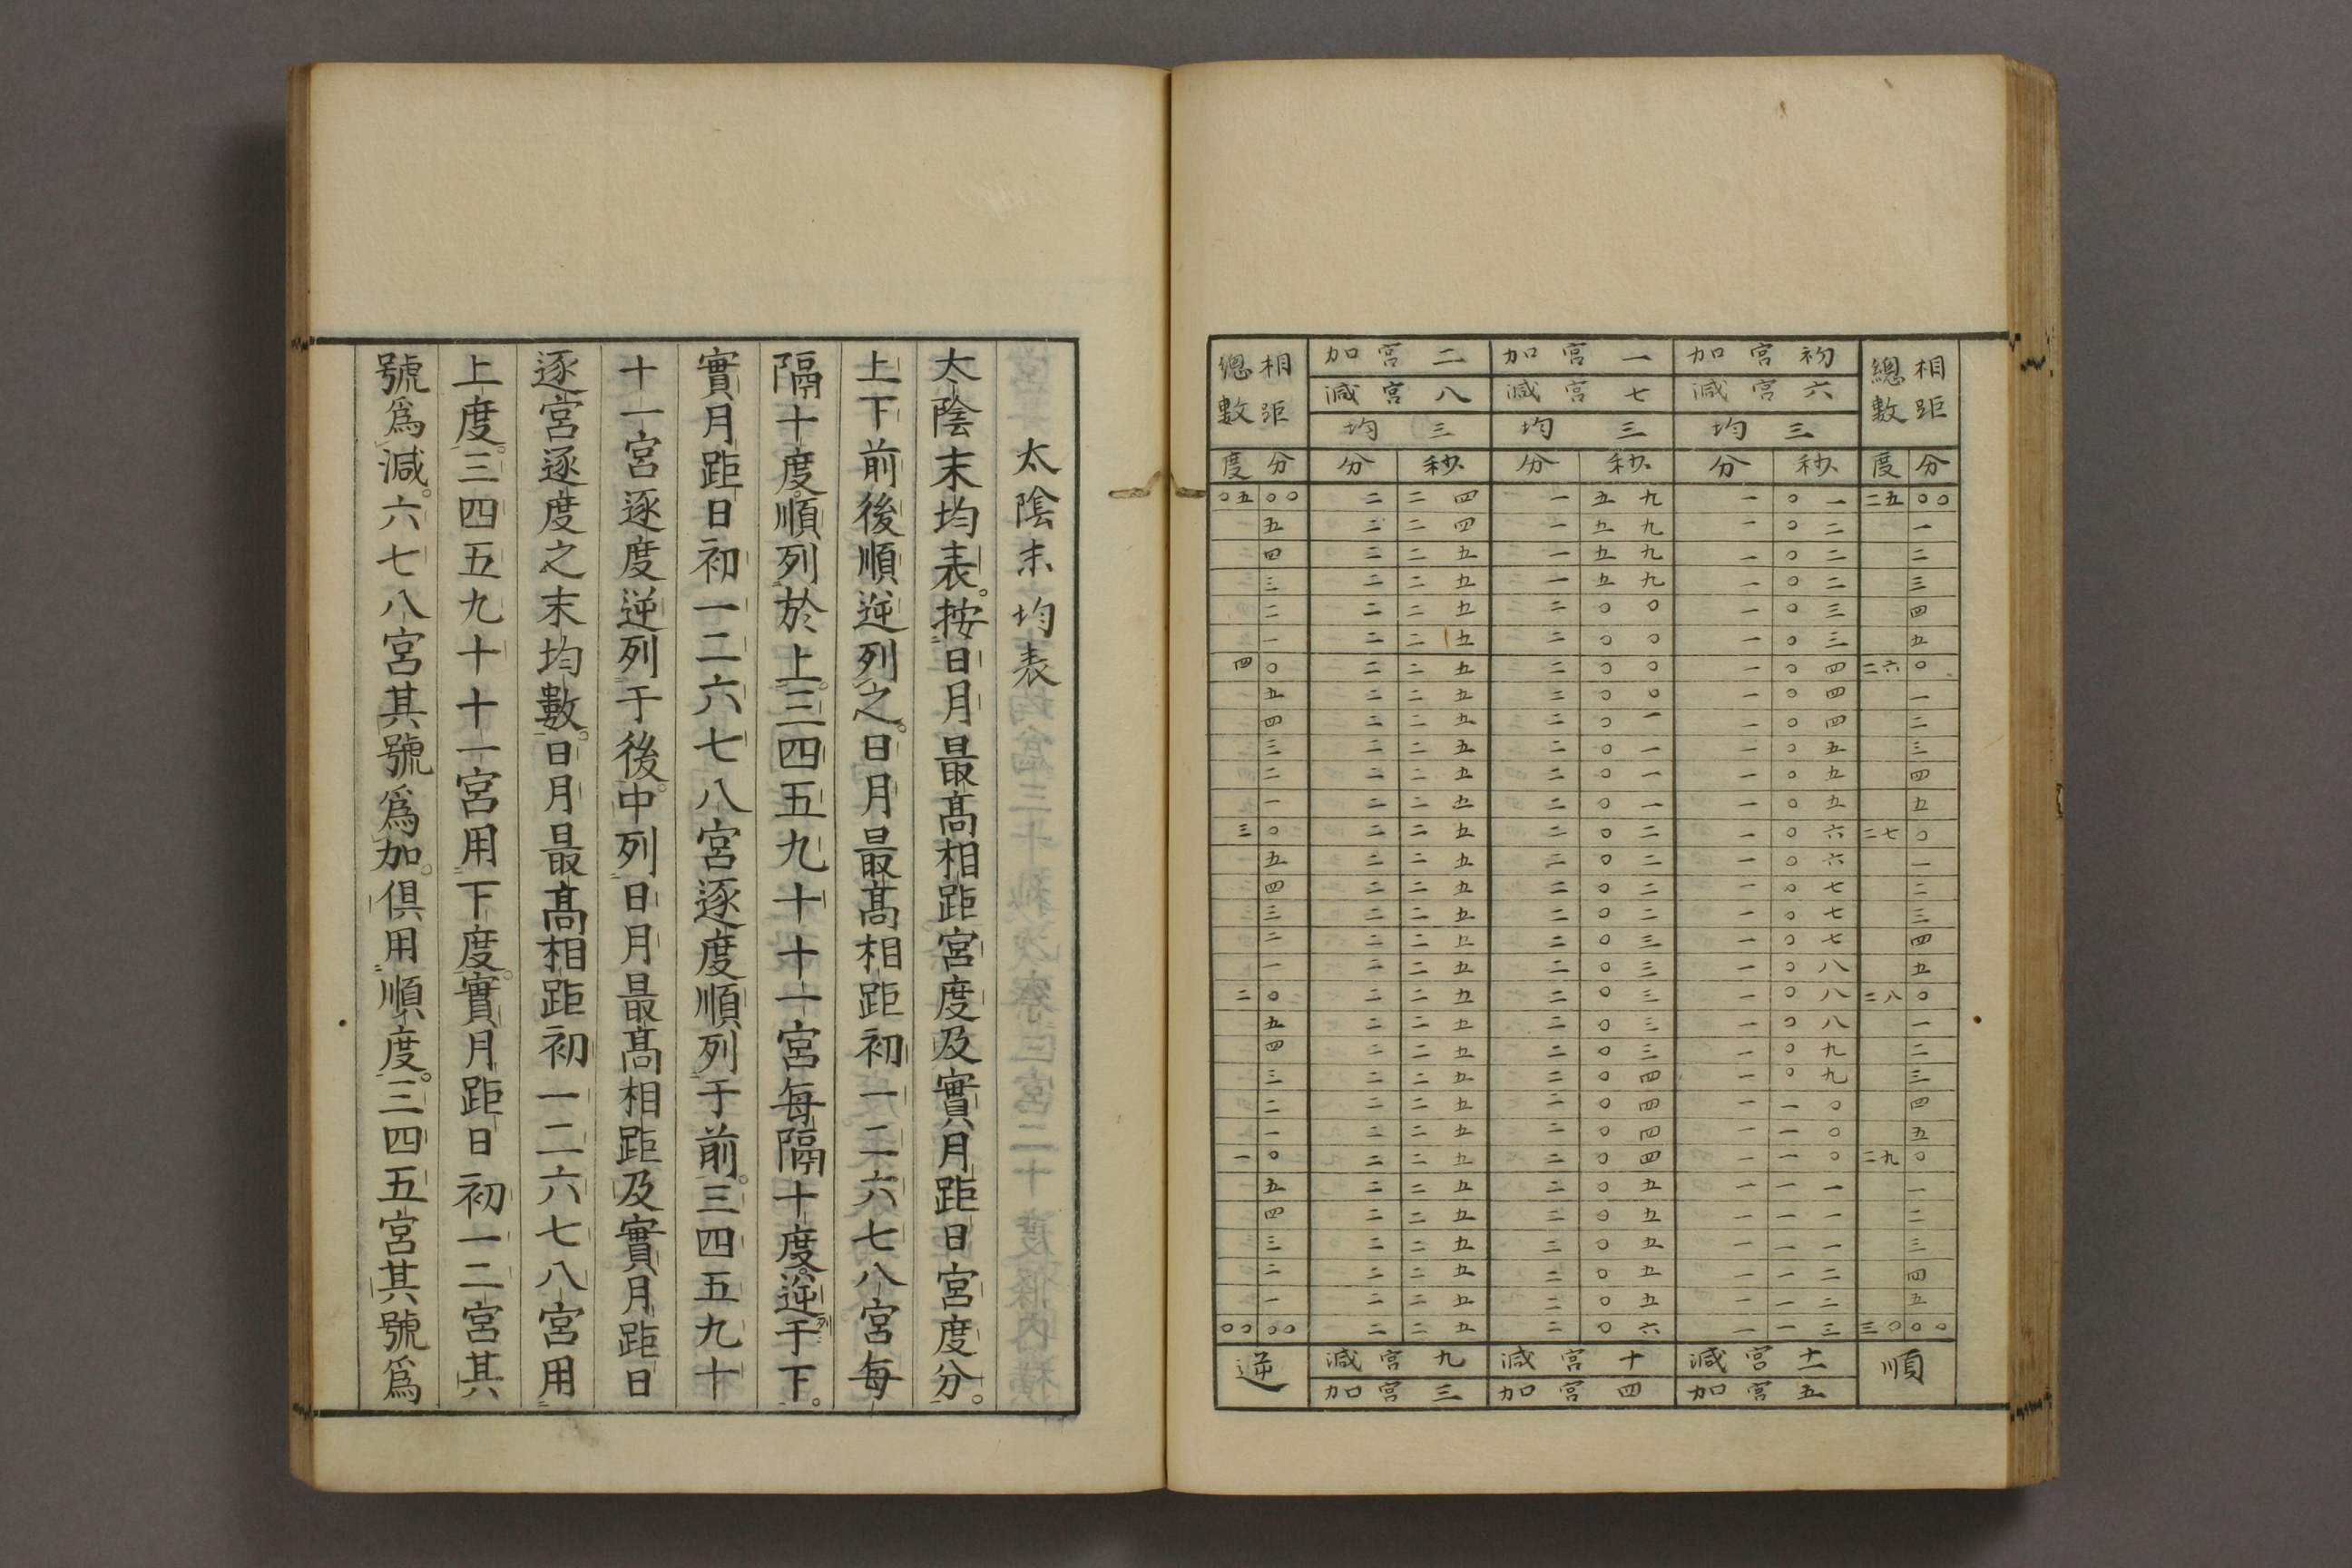 相距總數
初宮加
一宮加
二宮加
相距總數
六宮減
七宮減
八宮減
三均
三均
三均
度 分 分 秒 分 秒 分 秒 度 分
〇五 〇〇 二 二四 一 五九 一 〇一 二五 〇〇
五 二 二四 一 五九 一 〇二 一
四 二 二五 一 五九 一 〇二 二
三 二 二五 一 五九 一 〇二 三
二 二 二五 二 〇〇 一 〇三 四
一 二 二五 二 〇〇 一 〇三 五
四 〇 二 二五 二 〇〇 一 〇四 二六 〇
五 二 二五 二 〇〇 一 〇四 一
四 二 二五 二 〇一 一 〇四 二
三 二 二五 二 〇一 一 〇五 三
二 二 二五 二 〇一 一 〇五 四
一 二 二五 二 〇一 一 〇五 五
三 〇 二 二五 二 〇二 一 〇六 二七 〇
五 二 二五 二 〇二 一 〇六 一
四 二 二五 二 〇二 一 〇七 二
三 二 二五 二 〇二 一 〇七 三
二 二 二五 二 〇三 一 〇七 四
一 二 二五 二 〇三 一 〇八 五
二 〇 二 二五 二 〇三 一 〇八 二八 〇
五 二 二五 二 〇三 一 〇八 一
四 二 二五 二 〇三 一 〇九 二
三 二 二五 二 〇四 一 〇九 三
二 二 二五 二 〇四 一 一〇 四
一 二 二五 二 〇四 一 一〇 五
一 〇 二 二五 二 〇四 一 一〇 二九 〇
五 二 二五 二 〇五 一 一一 一
四 二 二五 二 〇五 一 一一 二
三 二 二五 二 〇五 一 一一 三
二 二 二五 二 〇五 一 一二 四
一 二 二五 二 〇五 一 一二 五
〇〇 〇〇 二 二五 二 〇六 一 一三 三〇 〇〇
順
十一宮減
十宮減
九宮減
逆
五宮加
四宮加
三宮加
太陰末均表
太陰末均表。按日月最高相距宮度及實月距日宮度分。
上下前後順逆列之。日月最高相距初一二六七八宮每
隔十度順列於上。三四五九十十一宮每隔十度。逆列于下。
實月距日初一二六七八宮逐度順列于前。三四五九十
十一宮逐度逆列于後。中列日月最高相距及實月距日
逐宮逐度之末均數。日月最高相距初一二六七八宮用
上度。三四五九十十一宮用下度。實月距日初一二宮其
號爲減。六七八宮其號爲加。俱用順度。三四五宮其號爲